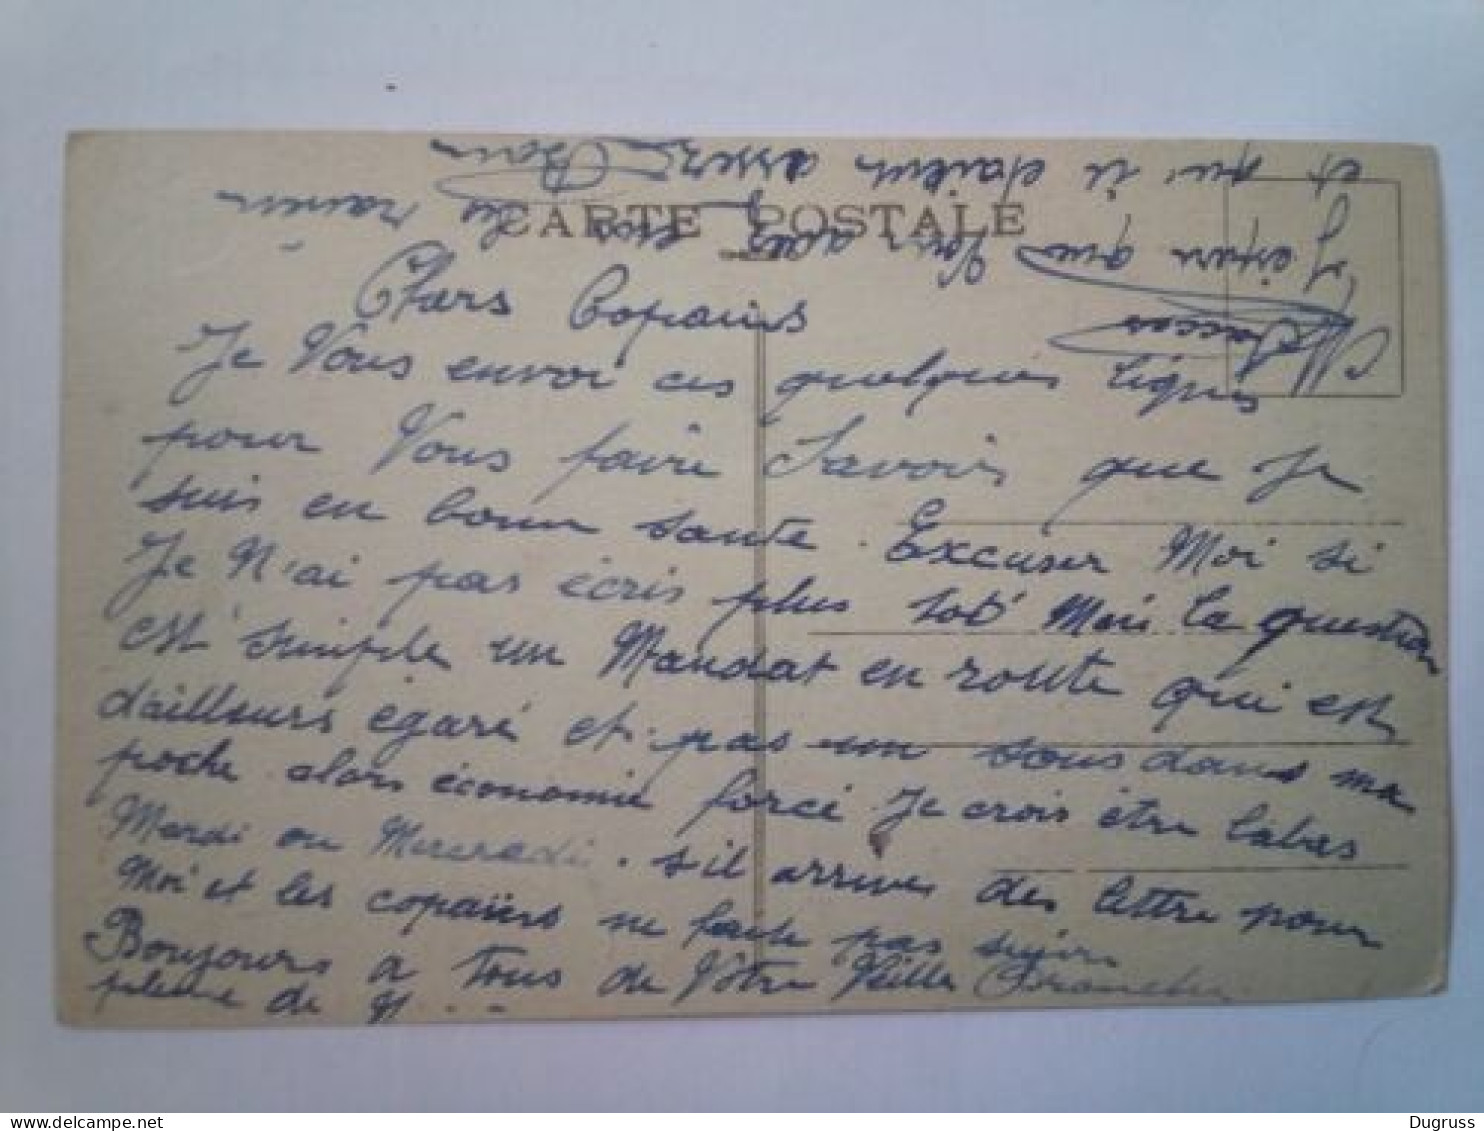 CARTE POSTALE
Chers Copains
Je Vous envoi ces quelques lignes
pour Vous faire Savoir que Je
suis en bonne sante. Excuser Moi si
Je N'ai pas écris plus tot Mais la question
est simple un Mandat en route qui est
d'ailleurs égaré et pas un sous dans ma
poche alors économie forcé. Je crois être labas
Mardi ou Mercredi. s'il arrives des lettre pour
Moi et les copains ne faite pas suivre
Bonjours a tous de Vôtre Vieille Branche
pleine de N...
J'espere que Vous avez les
et qui ie d'ailleur assez
Dugruss